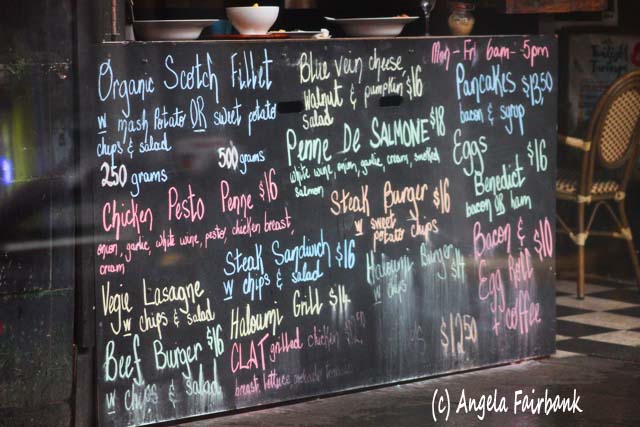 Organic Scotch Fillet
w mash potato OR sweet potato
chips & salad
250 grams 500 grams
Chicken Pesto Penne $16
onion, garlic, white wine, pesto, chicken breast
cream
Vegie Lasagne
w chips & salad
Beef Burger $16
w chips & salad
Blue vein cheese
walnut & pumpkin $16
salad
Penne De Salmone $18
white wine, onion, garlic, cream, smoked
salmon
Steak Burger $16
w sweet
potato chips
Steak Sandwich $16
w chips & salad
Haloumi Burger $14
w chips
Haloumi Grill $14
CLAT grilled chicken
breast, lettuce, avocado
$12.50
Mon - Fri 6am - 5pm
Pancakes $13.50
bacon & syrup
Eggs $16
Benedict
bacon OR ham
Bacon & $10
Egg Roll
+ coffee
(c) Angela Fairbank